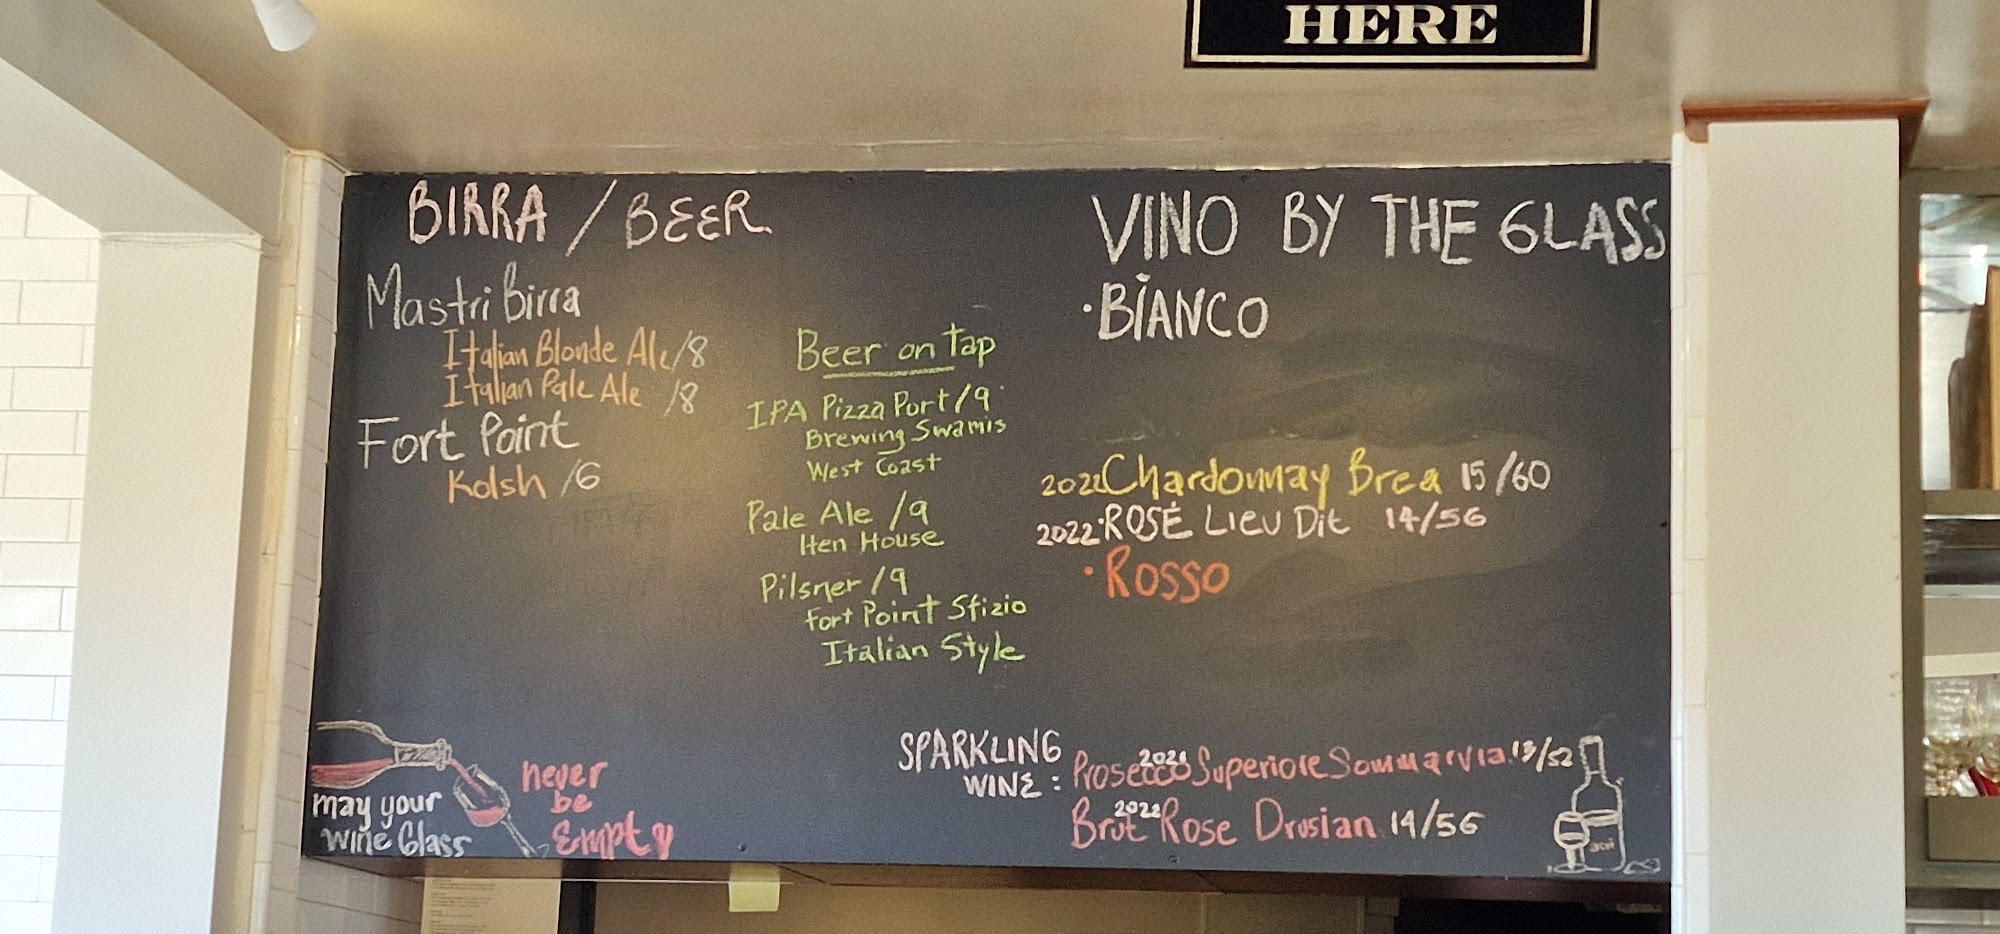 HERE
BIRRA / BEER
Mastri Birra
Italian Blonde Ale /8
Italian Pale Ale /8
Fort Point
Kolsh /6
Beer on tap
IPA Pizza Port /9
Brewing Swamis
West Coast
Pale Ale /9
Hen House
Pilsner /9
Fort Point Sfizio
Italian Style
VINO BY THE GLASS
• BIANCO
2022 Chardonnay Brea 15/60
2022 • ROSÉ Lieu Dit 14/56
• Rosso
SPARKLING
WINE :
Prosecco 2021 Superiore Sommarvia 13/52
Brut 2022 Rose Drusian 14/56
may your
wine Glass
never
be
Empty